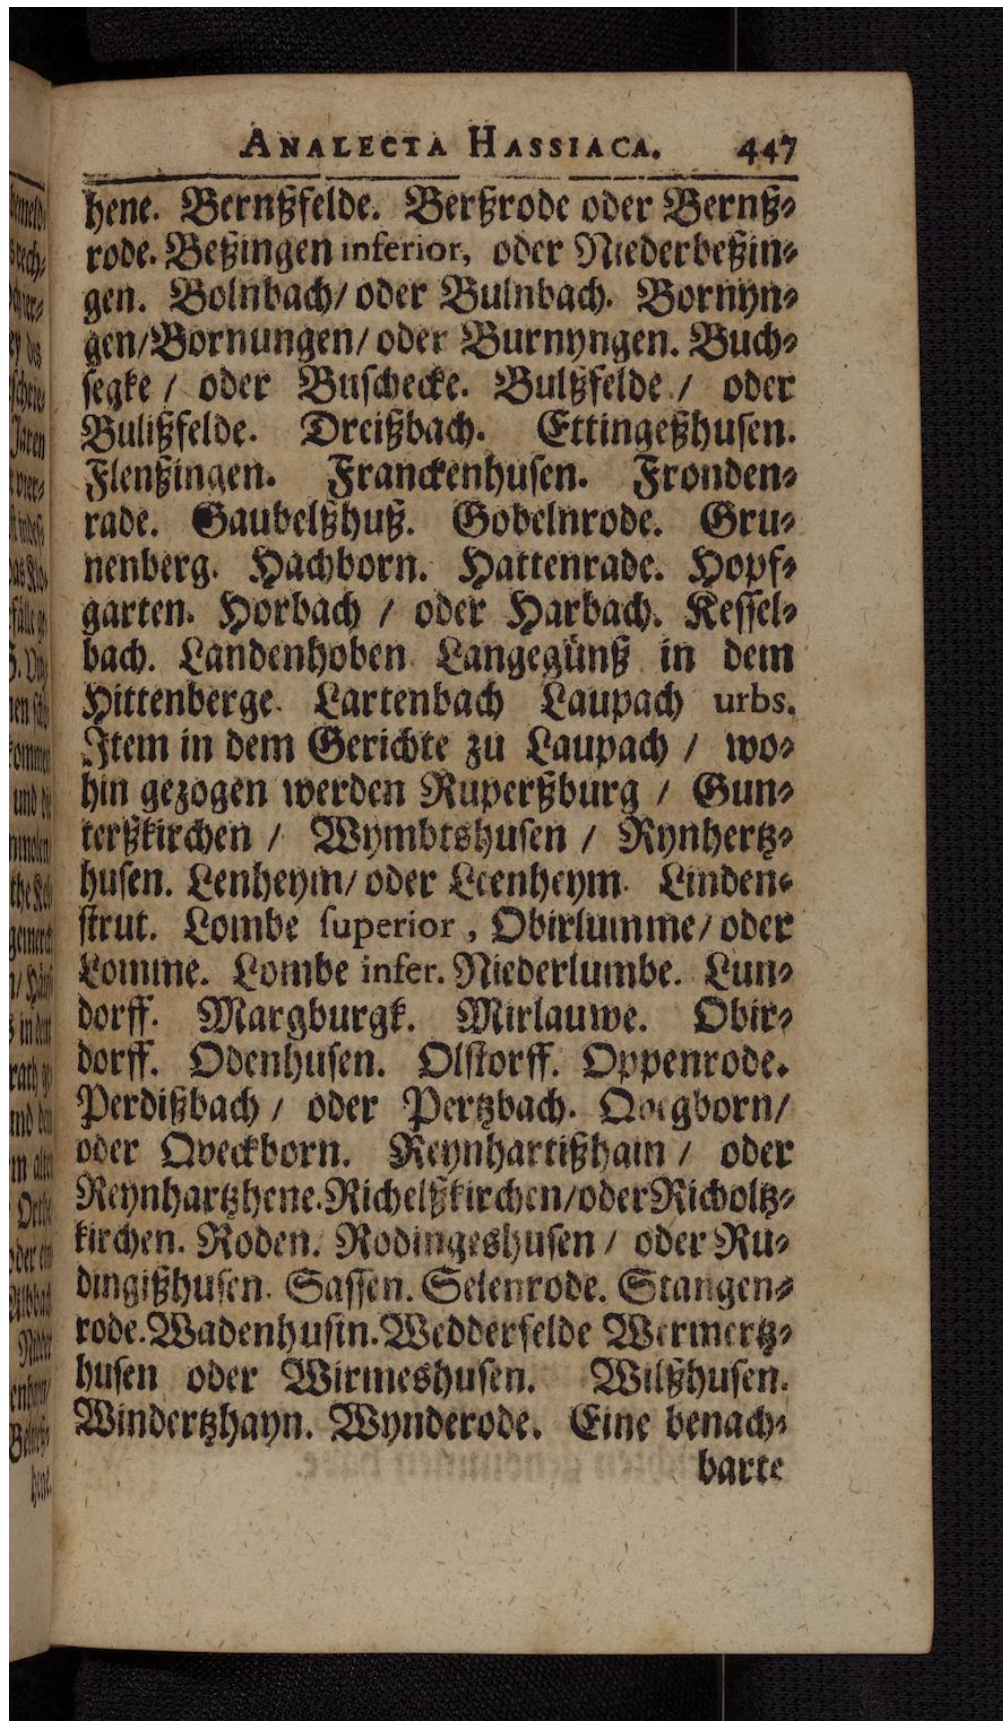 ANALECTA HASSIACA. 447
hene. Bernßfelde. Berßrode oder Bernß⸗
rode. Beßingen inferior, oder Niederbeßin⸗
gen. Bolnbach/ oder Bulnbach. Bornyn⸗
gen/Bornungen/ oder Burnyngen. Buch⸗
segke / oder Buschecke. Bultzfelde / oder
Bulißfelde. Dreißbach. Ettingeßhusen.
Flenßingen. Franckenhusen. Fronden⸗
rade. Gaubelßhuß. Gobelnrode. Gru⸗
nenberg. Hachborn. Hattenrade. Hopf⸗
garten. Horbach / oder Harbach. Kessel⸗
bach. Landenhoben Langegünß in dem
Hittenberge. Lartenbach Laupach urbs.
Item in dem Gerichte zu Laupach / wo⸗
hin gezogen werden Rupertßburg / Gun⸗
terßkirchen / Wymbtshusen / Rynhertz⸗
husen. Lenheym/ oder Leenheym. Linden⸗
strut. Lombe superior, Obirlumme/ oder
Lomme. Lombe infer. Niederlumbe. Lun⸗
dorff. Margburgk. Mirlauwe. Obir⸗
dorff. Odenhusen. Olstorff. Oppenrode.
Perdißbach / oder Pertzbach. Qvegborn/
oder Qveckborn. Reynhartißhain / oder
Reynhartzhene. Richelßkirchen/oder Richoltz⸗
kirchen. Roden. Rodingeshusen / oder Ru⸗
dingißhusen. Sassen. Selenrode. Stangen⸗
rode. Wadenhusin. Wedderfelde Wermertz⸗
husen oder Wirmeshusen. Wilßhusen.
Windertzhayn. Wynderode. Eine benach⸗
barte